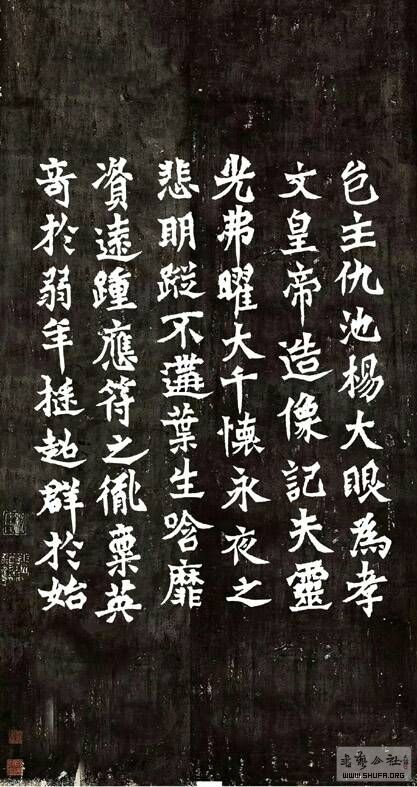 邑主仇池楊大眼為孝
文皇帝造像記夫靈
光弗曜大千懷永夜之
悲明蹤不遘葉生唅靡
資遠踵應符之胤稟英
奇於弱年挺超群於始
書藝公社
WWW.SHUFA.ORG